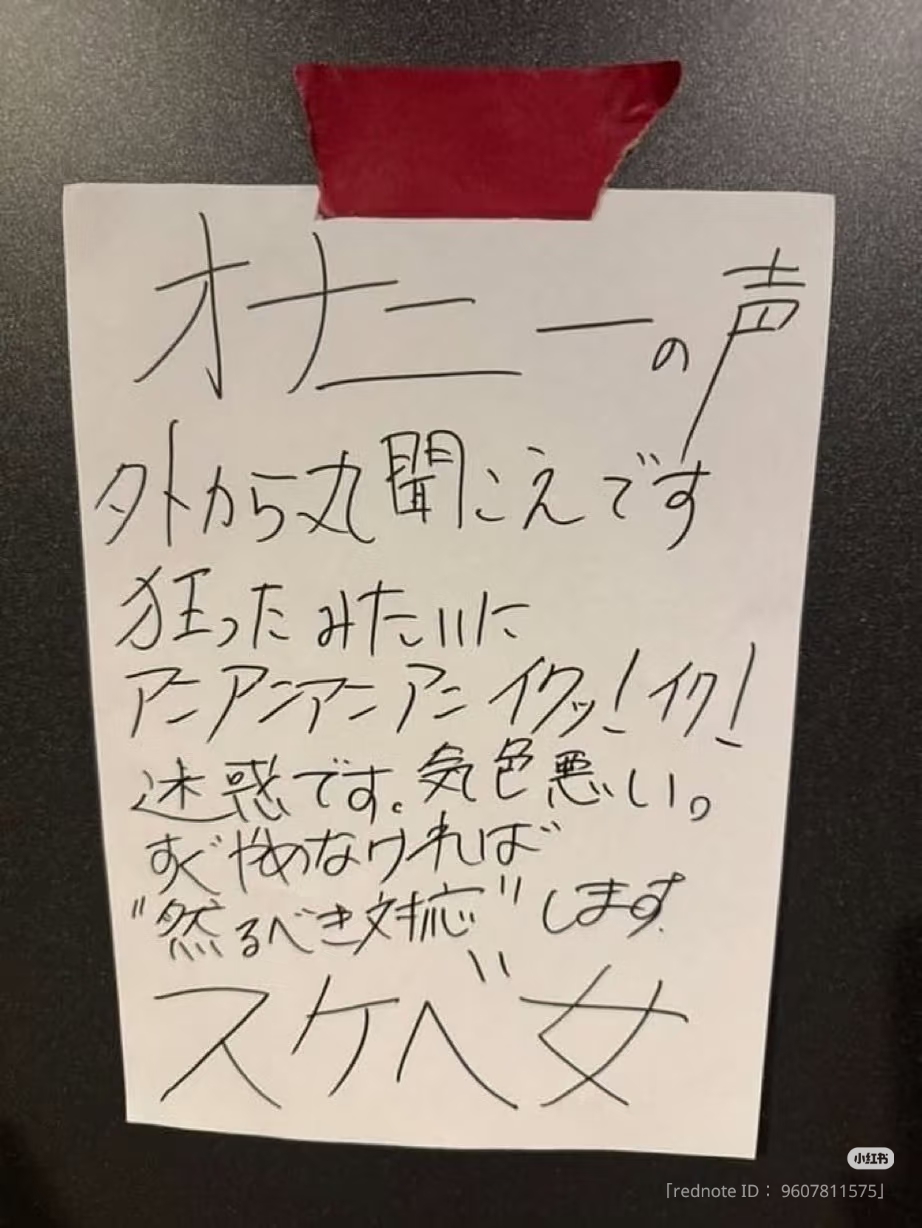 オナニーの声
外から丸聞こえです
狂ったみたいに
アンアンアンアンイクッ!イク!
迷惑です。気色悪い。
すぐやめなければ
"然るべき対応"します
スケベ女
小红书
「rednote ID： 9607811575」